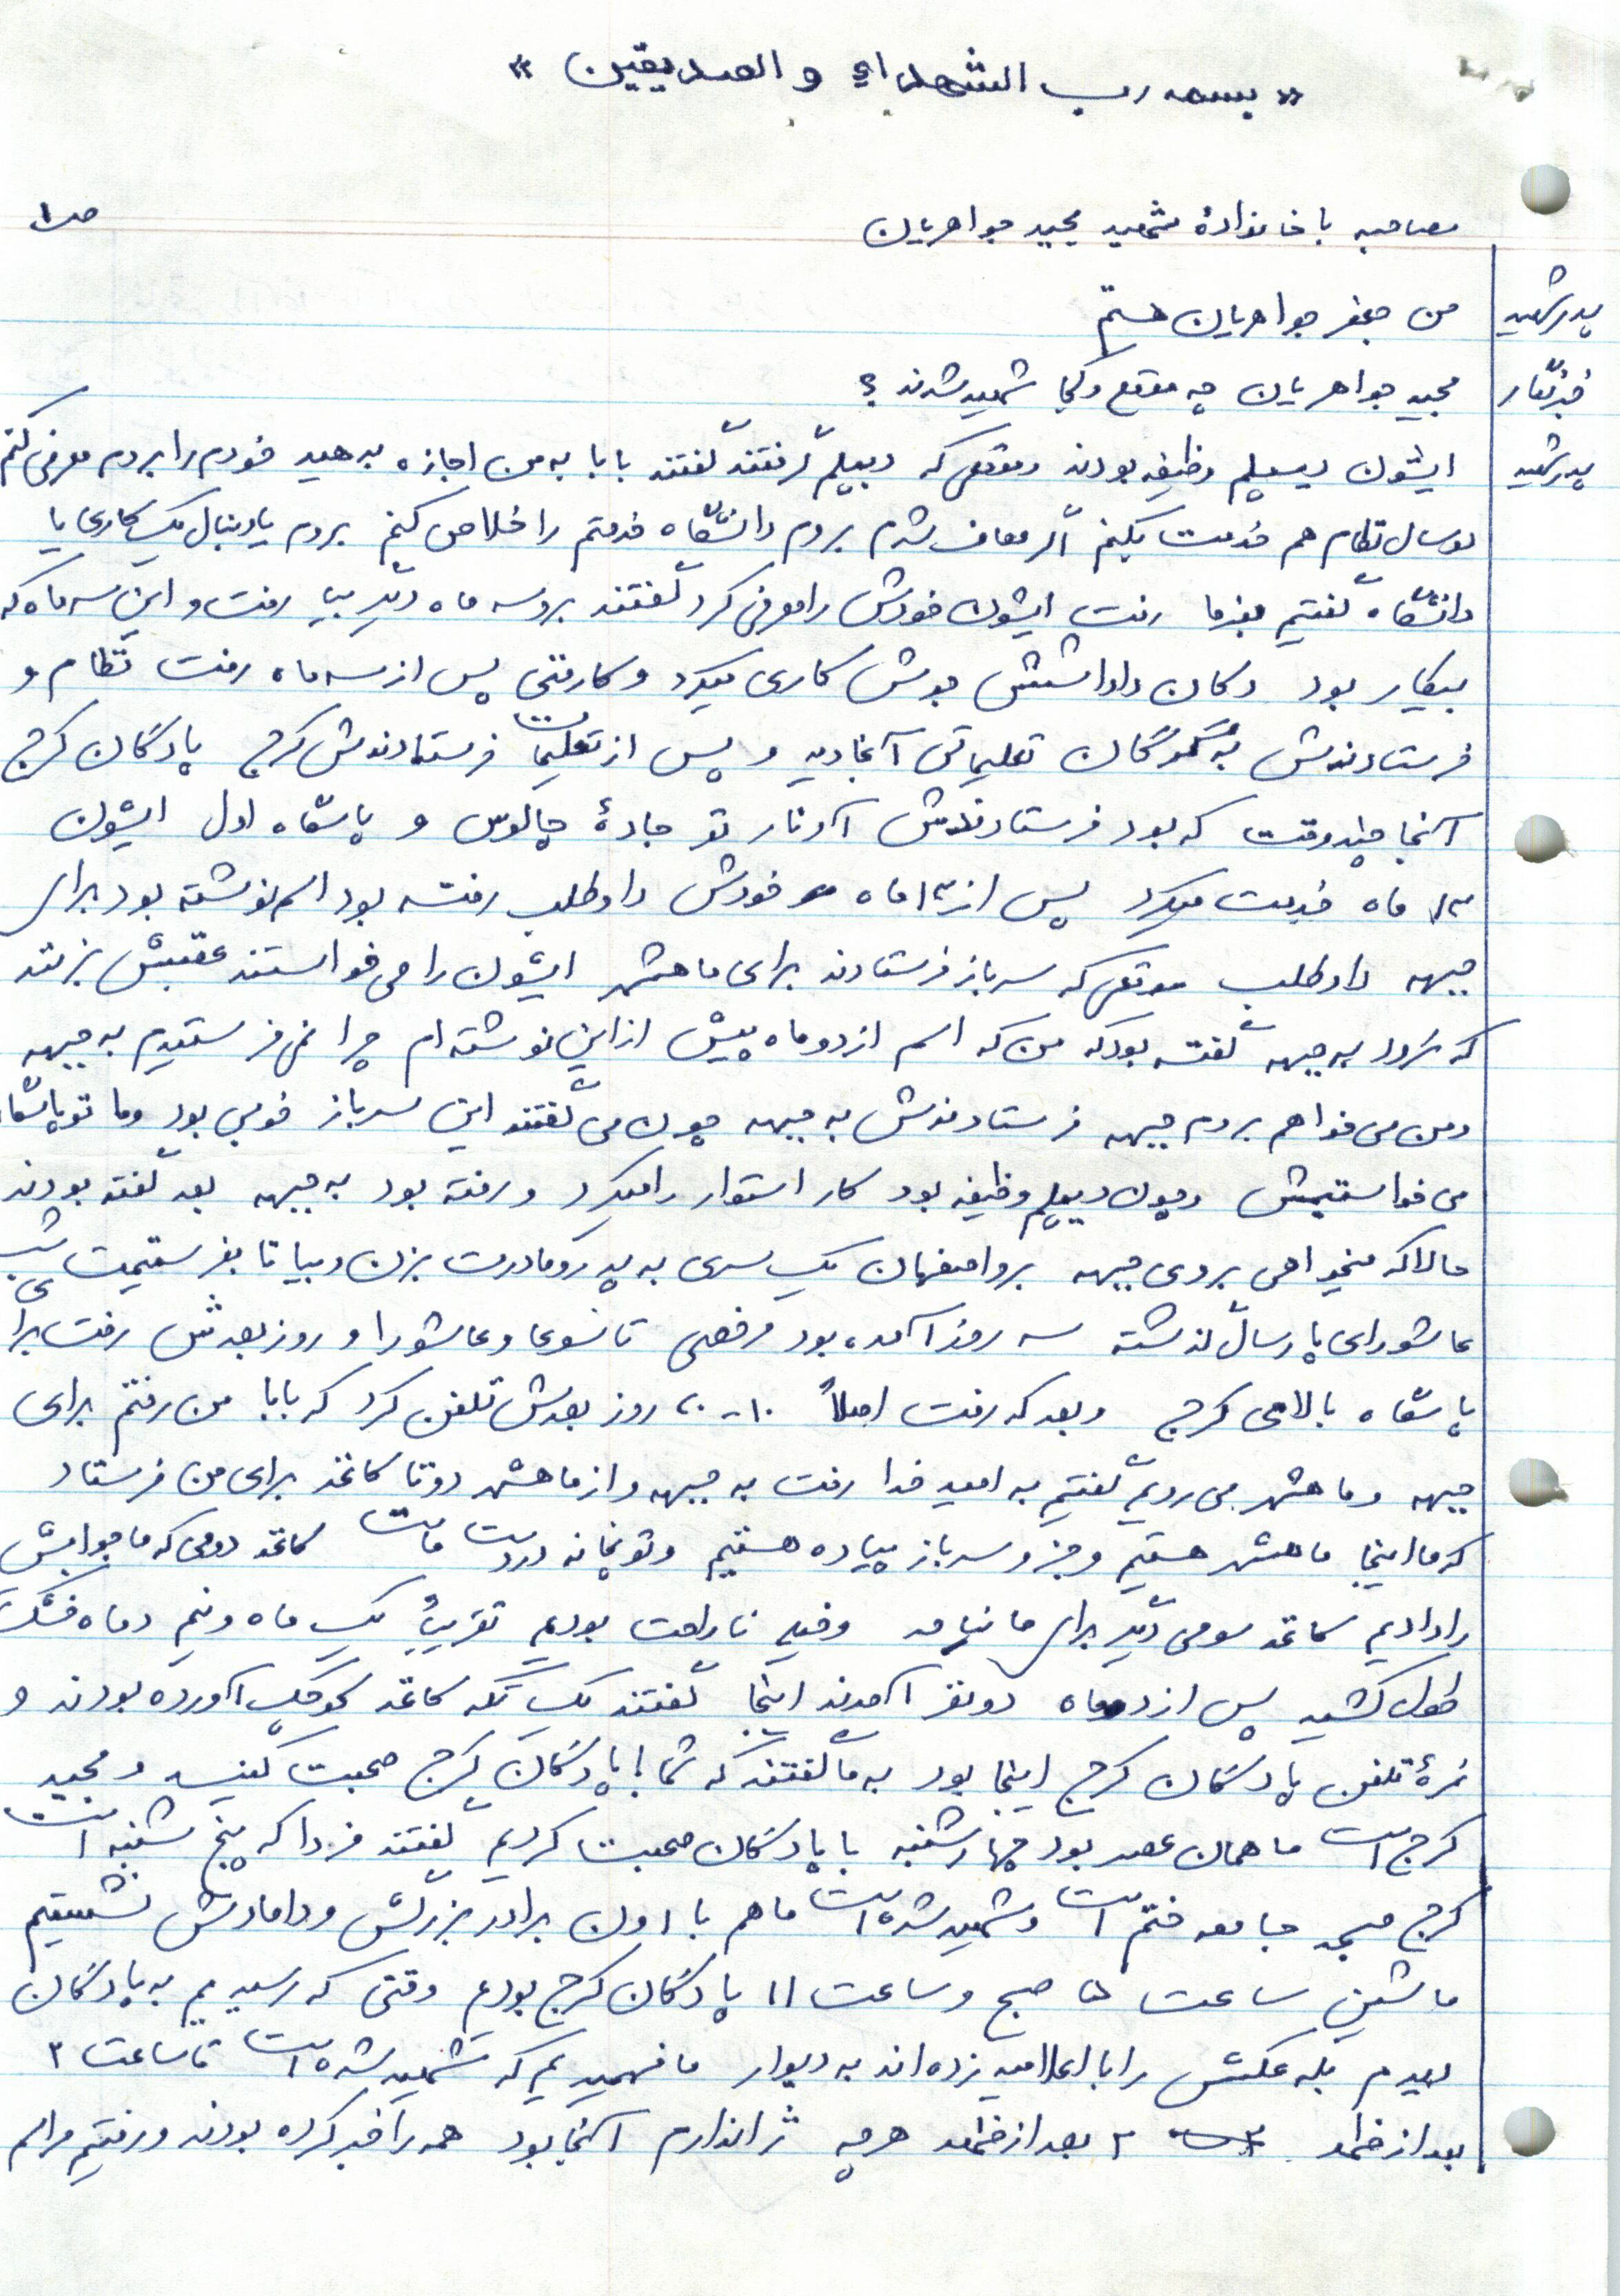 « بسمه رب الشهداء و الصدیقین »
مصاحبه با خانوادهٔ شهید مجید جواهریان ص ۱
پدر شهید من جعفر جواهریان هستم
خبرنگار مجید جواهریان چه موقع و کجا شهید شدند ؟
پدر شهید ایشون دیپلم وظیفه بودند وموقعی که دیپلم گرفتند گفتند بابا به من اجازه بدهید خودم را بروم معرفی کنم
دوسال نظام هم خدمت بکنم اگر معاف شدم بروم دانشگاه خدمتم را خلاص کنم بروم یا دنبال یک کاری یا
دانشگاه گفتیم بفرما رفت ایشون خودش را معرفی کرد گفتند برو سه ماه دیگر بیا رفت و این سه ماه که
بیکار بود دکان داداشش جوش کاری میکرد و کار فنی پس از سه ماه رفت نظام و
فرستادندش به تعلیماتی آنجا دید و پس از تعلیمات فرستادندش کرج پادگان کرج
آنجا چند وقت که بود فرستادندش تو جادهٔ چالوس و پاسگاه اول ایشون
۱۳ ماه خدمت میکرد پس از ۱۳ ماه خودش داوطلب رفته بود اسم نوشته بود برای
جبهه داوطلب موقعی که سرباز فرستادند برای ماهشهر ایشون را می خواستند عقبش بزنند
که نرود به جبهه گفته بود که من که اسم از دو ماه پیش از این نوشته ام چرا نمی فرستیدم به جبهه
ومن می خواهم بروم جبهه فرستادندش به جبهه چون می گفتند این سرباز خوبی بود وما تو پاسگاه
می خواستیمش و چون دیپلم وظیفه بود کار استوار را میکرد و رفته بود به جبهه بعد گفته بودند
حالا که میخواهی بروی جبهه برو اصفهان یک سری به پدر و مادرت بزن و بیا تا بفرستیمت شب
عاشورای پارسال گذشته سه روز آمده بود مرخصی تاسوعا و عاشورا و روز بعدش رفت برای
پاسگاه بالا کرج وبعد که رفت اصلاً ۱۰ - ۲۰ روز بعدش تلفن کرد که بابا من رفتم برای
جبهه و ماهشهر می رویم گفتیم به امید خدا رفت به جبهه و از ماهشهر دو تا کاغذ برای من فرستاد
که ما اینجا ماهشهر هستیم وجزو سرباز پیاده هستیم و توپخانه دردست ماست کاغذ دومی که ما جوابش
را دادیم کاغذ سومی دیگر برای ما نیامد وخیلی ناراحت بودیم تقریباً یک ماه ونیم دو ماه خشک
طول کشید پس از دوماه دو نفر آمدند اینجا گفتند یک تکه کاغذ کوچک آورده بودند و
نمرهٔ تلفن پادگان کرج اینجا بود به ما گفتند که شما با پادگان کرج صحبت کنید و مجید
کرج است ما همان عصر بود چهارشنبه با پادگان صحبت کردیم گفتند فردا که پنج شنبه است
کرج مسجد جامعه ختم است و شهید شده است ما هم با اون برادر بزرگش و دامادش نشستیم
ماشین ساعت ۵ صبح و ساعت ۱۱ پادگان کرج بودیم وقتی که رسیدیم به پادگان
دیدم بله عکسش را با اعلامیه زده اند به دیوار ما فهمیدیم که شهید شده است تا ساعت ۳
بعد از ظهر ۲ بعد از ظهر هر چه ژاندارم آنجا بود همه را خبر کرده بودند و رفتیم مراسم